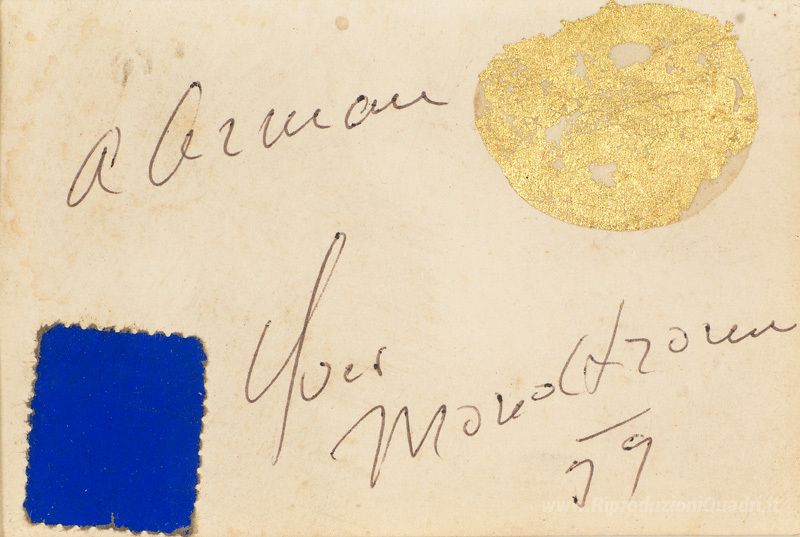 A Arman
Yves
Monochrome
59
www.RiproduzioniQuadri.it